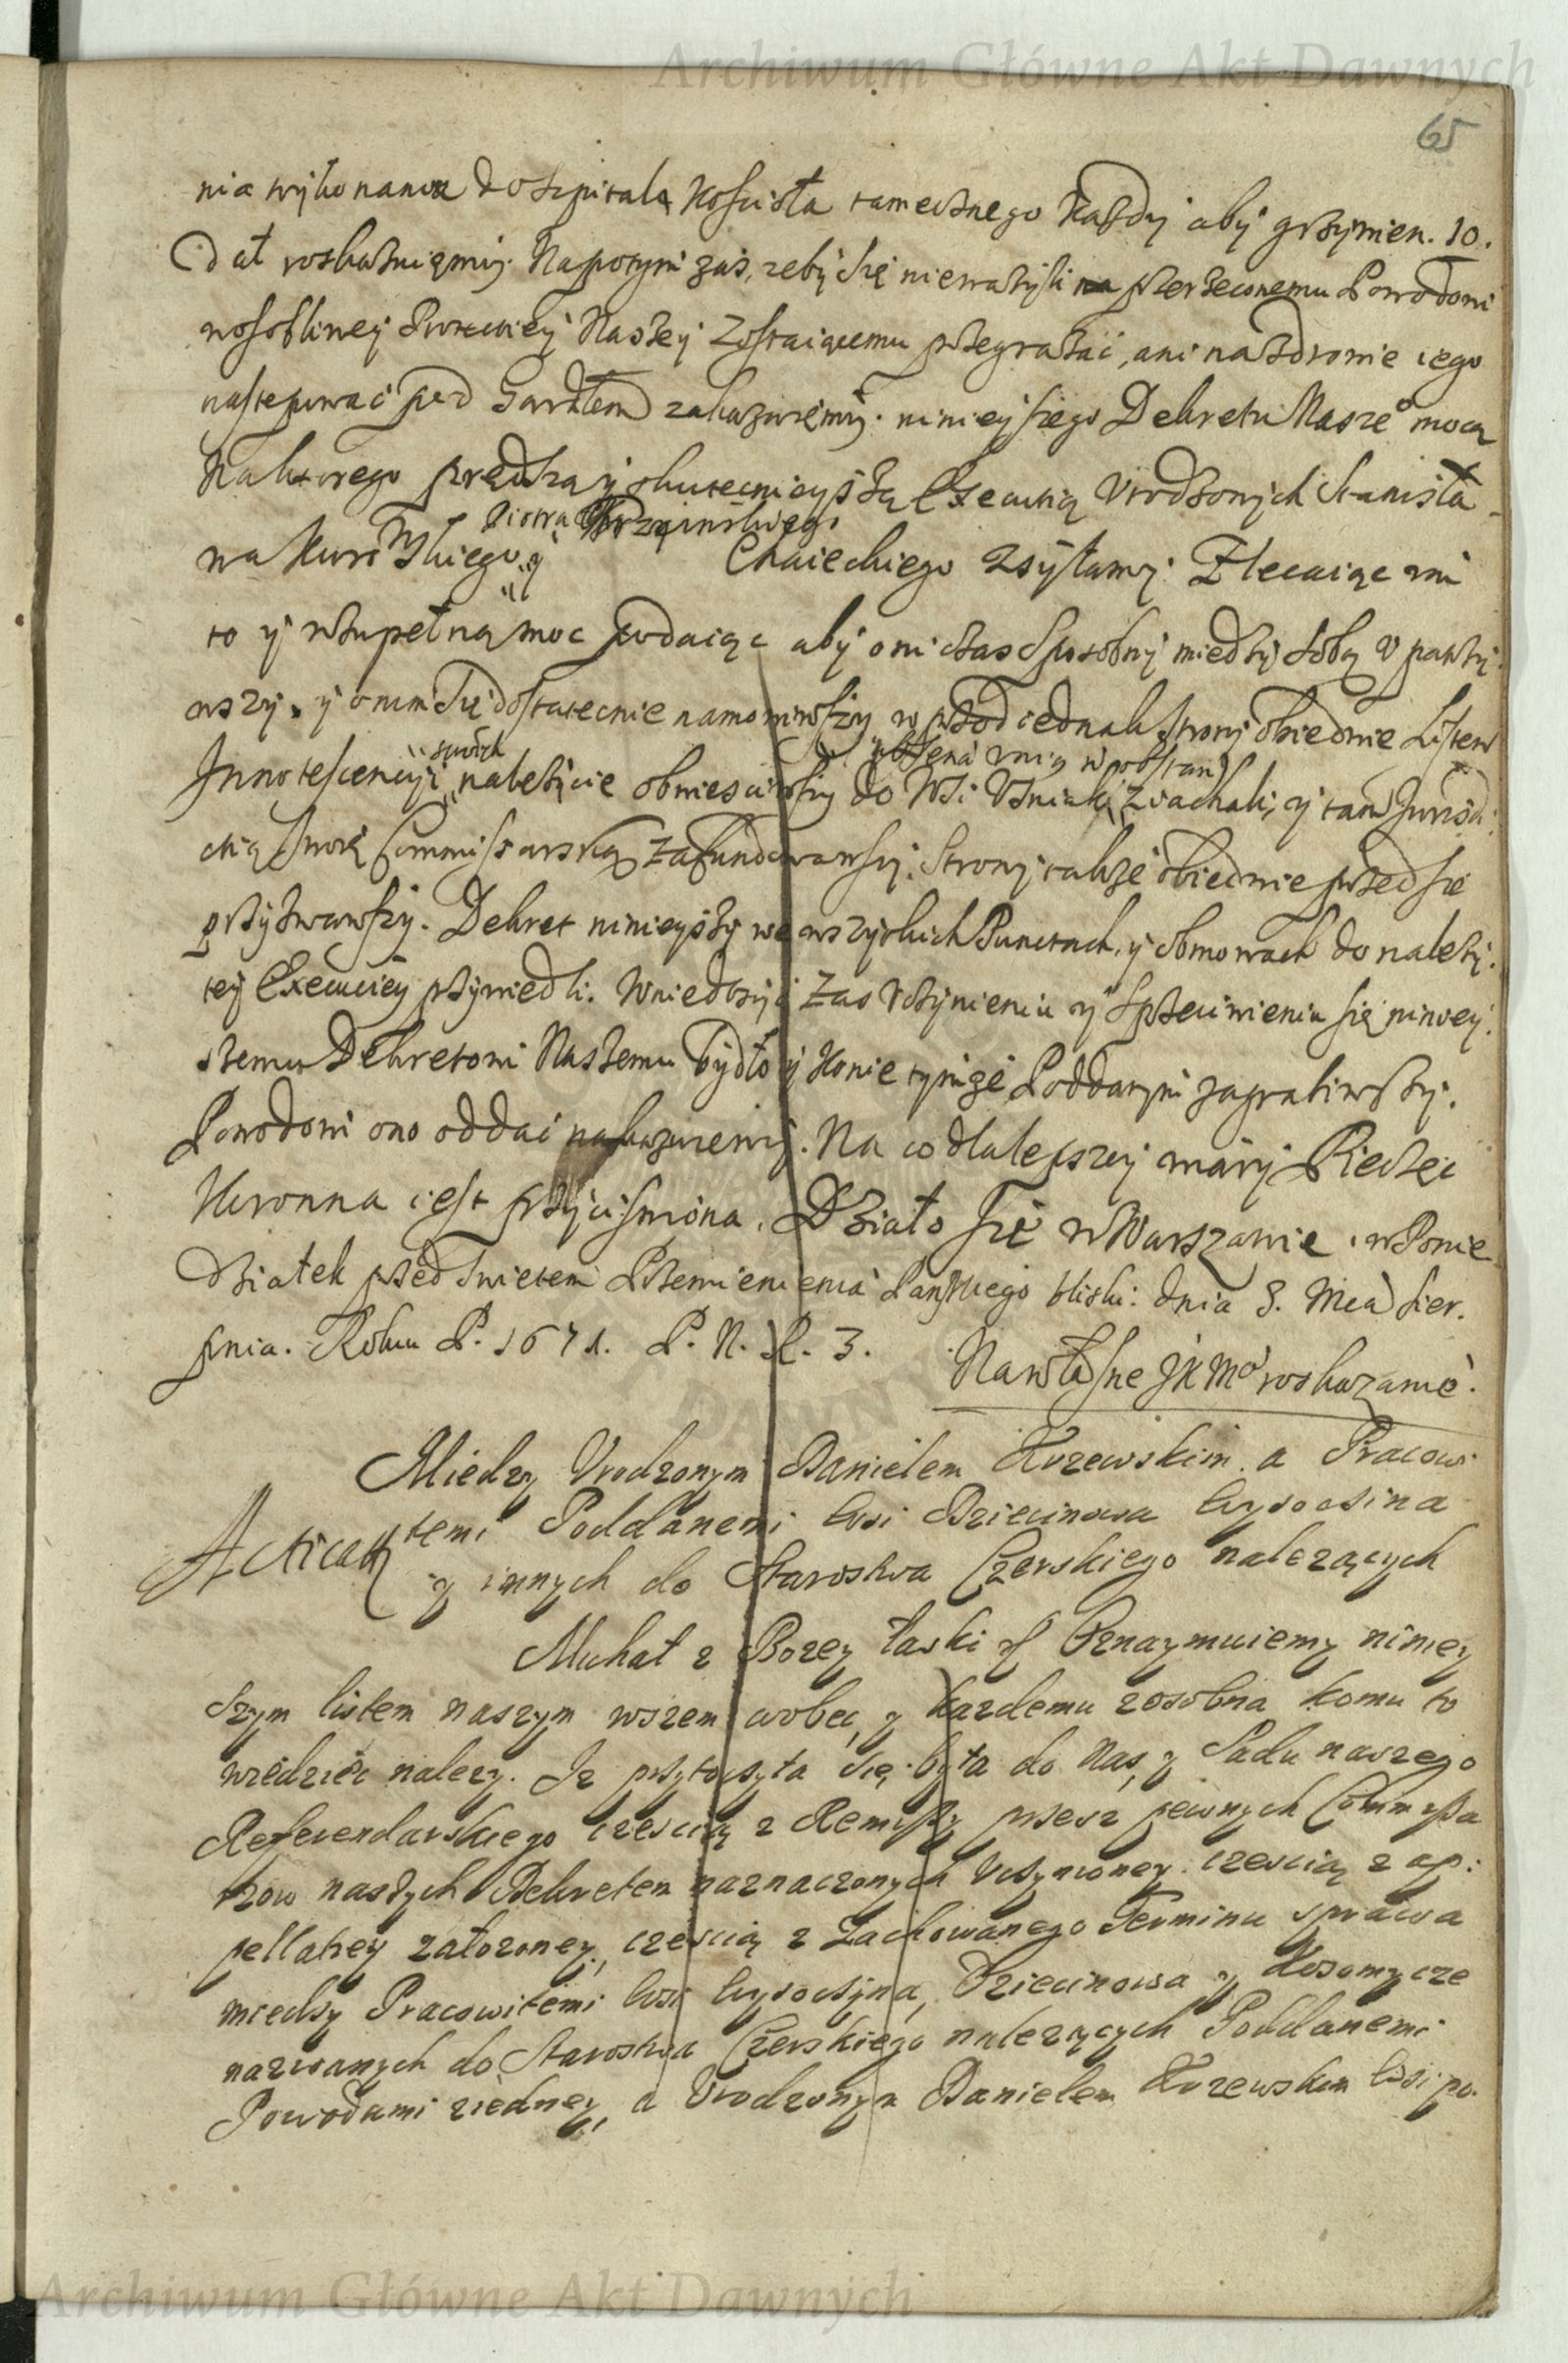 Archiwum Główne Akt Dawnych
65
nia wykonania do szpitala Kościoła tamecznego Każdy aby grzywien. 10.
dał roskazuięmy. Napotym zaś, zeby się nieważyli przerzeconemu Powodowi
wosobliwey Protekciey Naszey Zostaiącemu przegrażać, ani na zdrowie iego
następować pod Gardłem zakazuięmy. ninieyszego Dekretu Nasze° mocą
Naktorego prędszą y skutecznieyszą Execucią Vrodzonych Stanisła-
Piotra
wa Kur skiego y Chaieckiego zsyłamy. Zlecaiąc im
to y wzupełną moc podaiąc aby oni czas sposobny miedzy sobą v patrzy.
wszy, y onim się dostatecznie namowiwszy wprzod iednak strony obiedwie Listem
swoich
Innotescencyi należycie obwiesciwszy do Wsi Vzniaki ziachali, y tam Jurisdi.
ctią swoię Commissarską zafundowawszy. Strony także obiedwie przed się
przyzwawszy. Dekret ninieyszy we wszyskich Punctach, y obmowach do należy.
tey Execuciey przywiedli. Wniedosyć zas Vczynieniu y sprzeciwieniu się niniey.
szemu Dekretowi Naszemu bydło y Konie tymże Poddanym zagrabiwszy.
Powodowi ono oddać nakazuiemy. Na co dla lepszey wiary Pieczęć
Koronna iest przyciśniona. Działo się w Warszawie. w Ponie
działek przed Swietem Przemienienia Pańskiego bliski: dnia 3. Mca Sier.
pnia. Roku P. 1671. P. N. R. 3.
Nawłasne JKMci roskazanie.
Miedzy Vrodzonym Danielem Kurzewskim. a Pracowi
Acticat.
temi Poddanemi wsi Dziecinowa Wysoczina
y innych do Starostwa Czerskiego nalezących
Michał z Bozey łaski etc Oznaymuiemy niniey
szym listem naszym wszem wobec, y kazdemu zosobna komu to
wiedziec nalezy. Iz przytoczyła się była do Nas, y Sadu naszego
Referendarskiego czescią z Remissy przez pewnych Commissa
rzow naszych Dekretem naznaczonych Vczynioney. czescią z ap:
pellatiey załozoney, czescią z Zachowanego Terminu sprawa
miedzy Pracowitemi wsi Wysoczyna, Dziecinowa y Kosomycze
nazwanych do Starostwa Czerskiego nalezących Poddanemi
Powodami ziedney, a Vrodzonym Danielem Kurzewskim wsi po.
Archiwum Główne Akt Dawnych